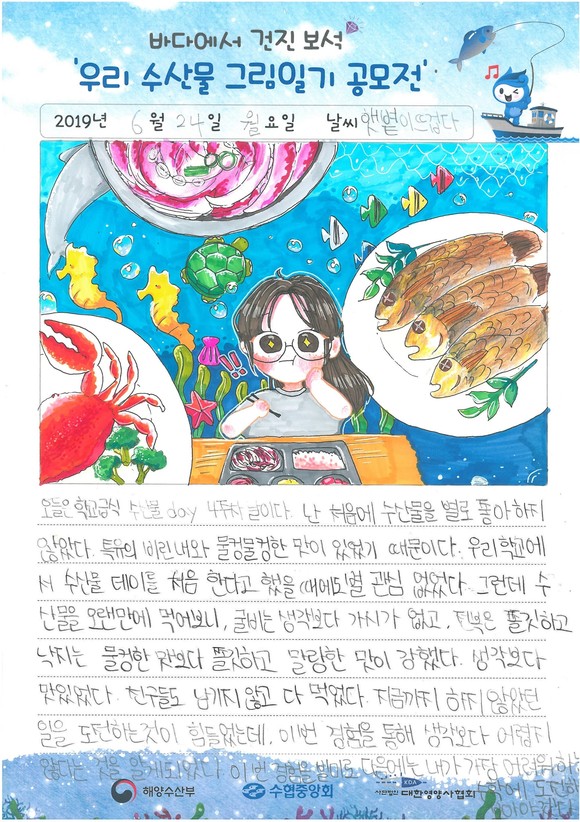 바다에서 건진 보석
'우리 수산물 그림일기 공모전'
2019년 6월 24일 월요일 날씨 햇볕이 뜨겁다
오늘은 학교급식 수산물 day 4주차 날이다. 난 처음에 수산물을 별로 좋아하지
않았다. 특유의 비린내와 물컹물컹한 맛이 있었기 때문이다. 우리학교에
서 수산물 데이를 처음 한다고 했을 때에도 별 관심 없었다. 그런데 수
산물을 오랜만에 먹어보니, 굴비는 생각보다 가시가 없고, 전복은 쫄깃하고
낙지는 물컹한 맛보다 쫄깃하고 말랑한 맛이 강했다. 생각보다
맛있었다. 친구들도 남기지 않고 다 먹었다. 지금까지 하지 않았던
일을 도전하는것이 힘들었는데, 이번 경험을 통해 생각보다 어렵지
않다는 것을 알게되었다. 이번 경험을 빌미로 다음에는 내가 가장 어려워하는
수학에 도전해
이야겠다.
해양수산부
수협중앙회
KDA
사단법인 대한영양사협회